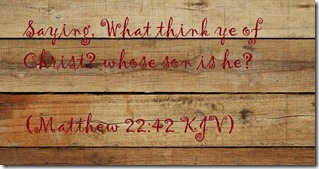 Saying, What think ye of
Christ? whose son is he?
(Matthew 22:42 KJV)